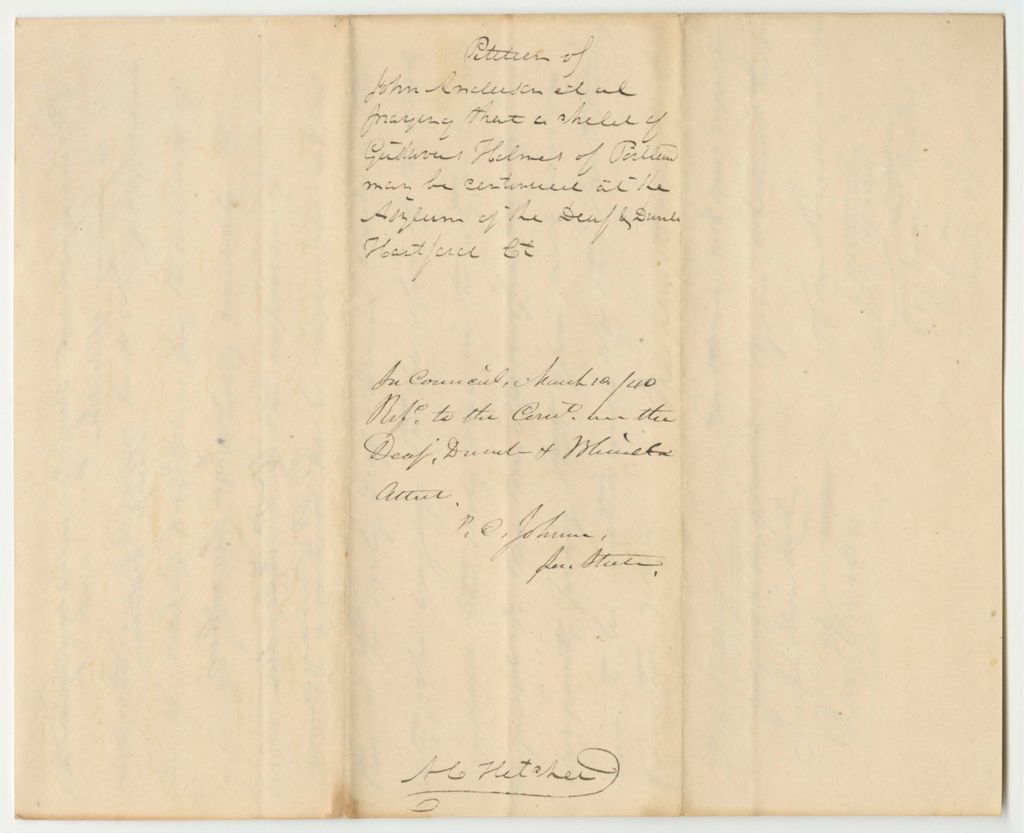 Petition of
John Anderson et al
praying that a child of
Gustavus Holmes of Portland
may be continued at the
Asylum of the Deaf & Dumb
Hartford Ct
In Council, March 12/40
Refd. to the Comt. on the
Deaf, Dumb & Blind
Attest.
P. C. Johnson,
Sec. State.